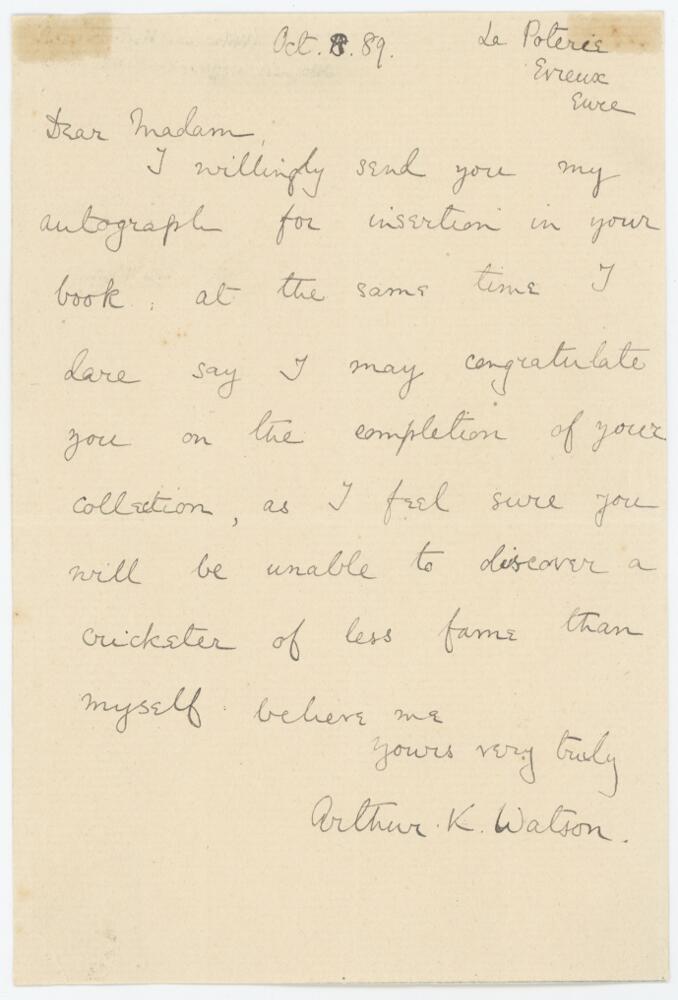 Oct. 8. 89.
Le Poterie
Evreux
Eure
Dear Madam,
I willingly send you my
autograph for insertion in your
book: at the same time I
dare say I may congratulate
you on the completion of your
collection, as I feel sure you
will be unable to discover a
cricketer of less fame than
myself. believe me
yours very truly
Arthur. K. Watson.